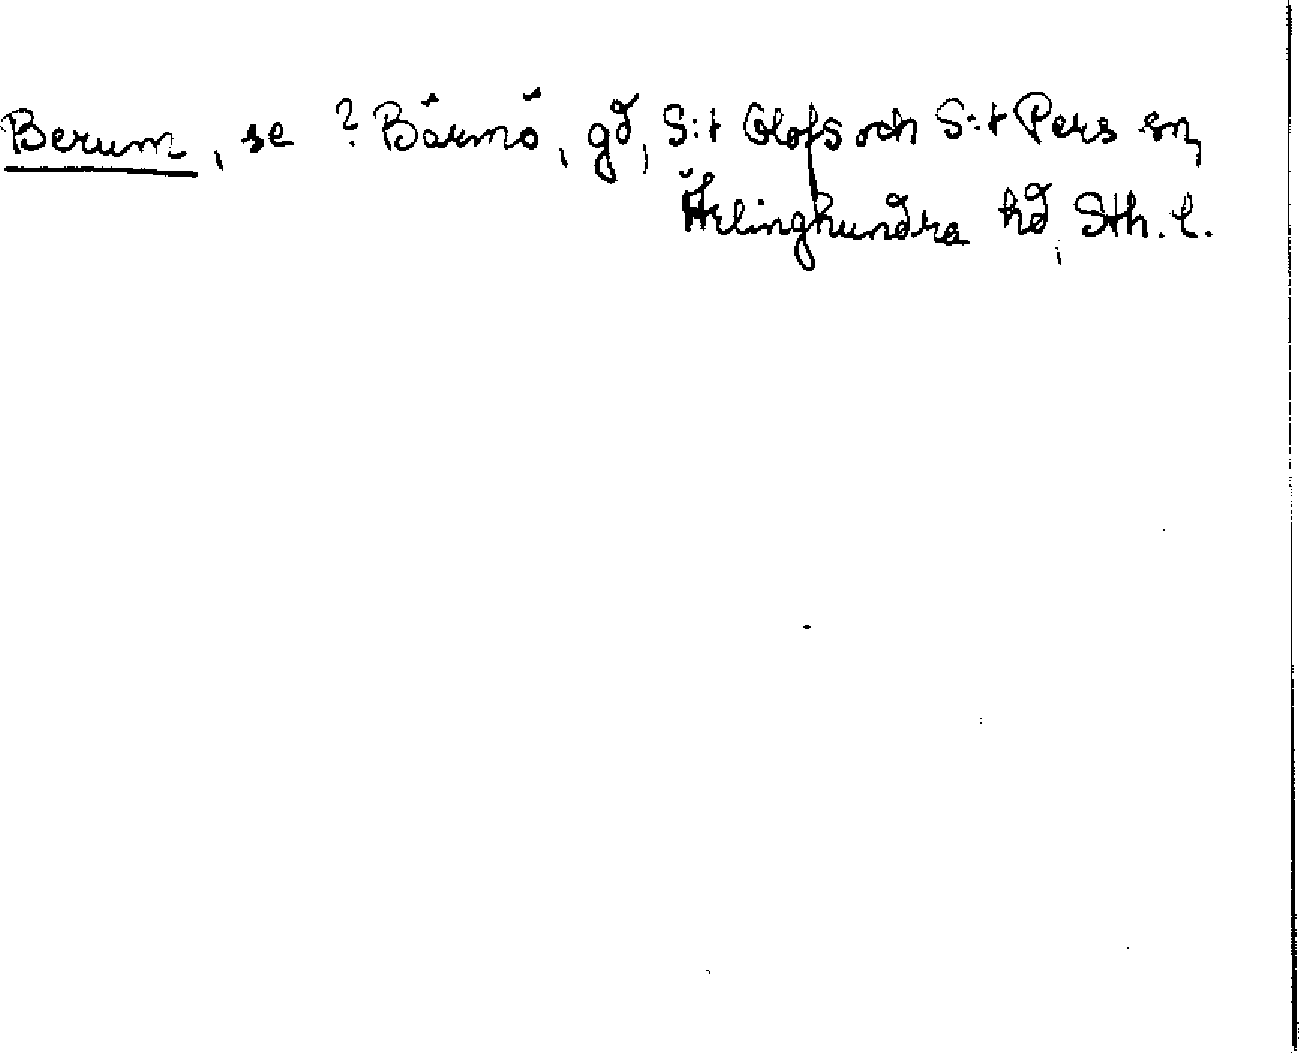 Berum, se ? Bärmö, gd, S:t Olofs och S:t Pers sn,
Ärlinghundra hd, Sth. l.